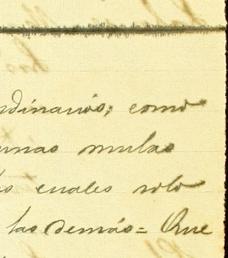 rdinarios; como
unas mulas
s cuales solo
las demás = Que